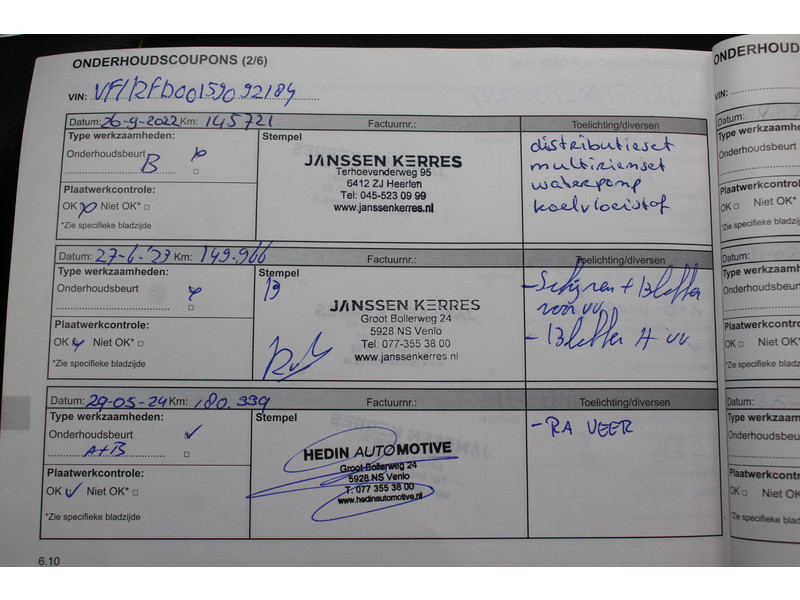 ONDERHOUDSCOUPONS (2/6)
VIN: VF1RFD00159092184
Datum: 26-9-2022 Km: 145721 Factuurnr.: Toelichting/diversen
Type werkzaamheden: Stempel
Onderhoudsbeurt
B
JANSSEN KERRES
Terhoevenderweg 95
6412 ZJ Heerlen
Tel: 045-523 09 99
www.janssenkerres.nl
distributieset
multiriemset
waterpomp
koelvloeistof
Plaatwerkcontrole:
OK Niet OK*
*Zie specifieke bladzijde
Datum: 27-6-'23 Km: 149.966 Factuurnr.: Toelichting/diversen
Type werkzaamheden: Stempel
Onderhoudsbeurt
B
JANSSEN KERRES
Groot Bollerweg 24
5928 NS Venlo
Tel: 077-355 38 00
www.janssenkerres.nl
- Schijven + Blokken
- Blokken A
Plaatwerkcontrole:
OK Niet OK*
*Zie specifieke bladzijde
Datum: 29-05-24 Km: 180.339 Factuurnr.: Toelichting/diversen
Type werkzaamheden: Stempel
Onderhoudsbeurt
A+B
HEDIN AUTOMOTIVE
Groot Bollerweg 24
5928 NS Venlo
T: 077 355 38 00
www.hedinautomotive.nl
- RA VEER
Plaatwerkcontrole:
OK Niet OK*
*Zie specifieke bladzijde
6.10
ONDERHOUD
VIN:
Datum:
Type werkzaamh
Onderhoudsbeurt
Plaatwerkcontrol
OK Niet OK*
*Zie specifieke blad
Datum:
Type werkzaamh
Onderhoudsbeu
Plaatwerkcontro
OK Niet OK
*Zie specifieke bla
Datum:
Type werkzaam
Onderhoudsbeu
Plaatwerkcontr
OK Niet OK
*Zie specifieke bla